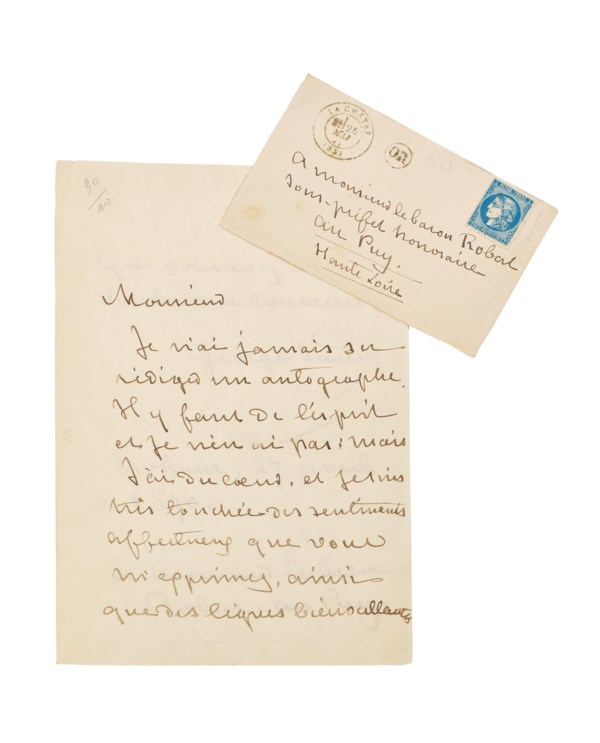 90
LA CHATRE
(35)
OR
A monsieur le baron Robert
sous-préfet honoraire
au Puy.
Haute Loire
Monsieur
Je n'ai jamais su
rédiger un autographe.
Il y faut de l'esprit
et je n'en ai pas; mais
J'ai du cœur, et je suis
très touchée des sentiments
affectueux que vous
m'exprimez, ainsi
que des lignes bienveillantes